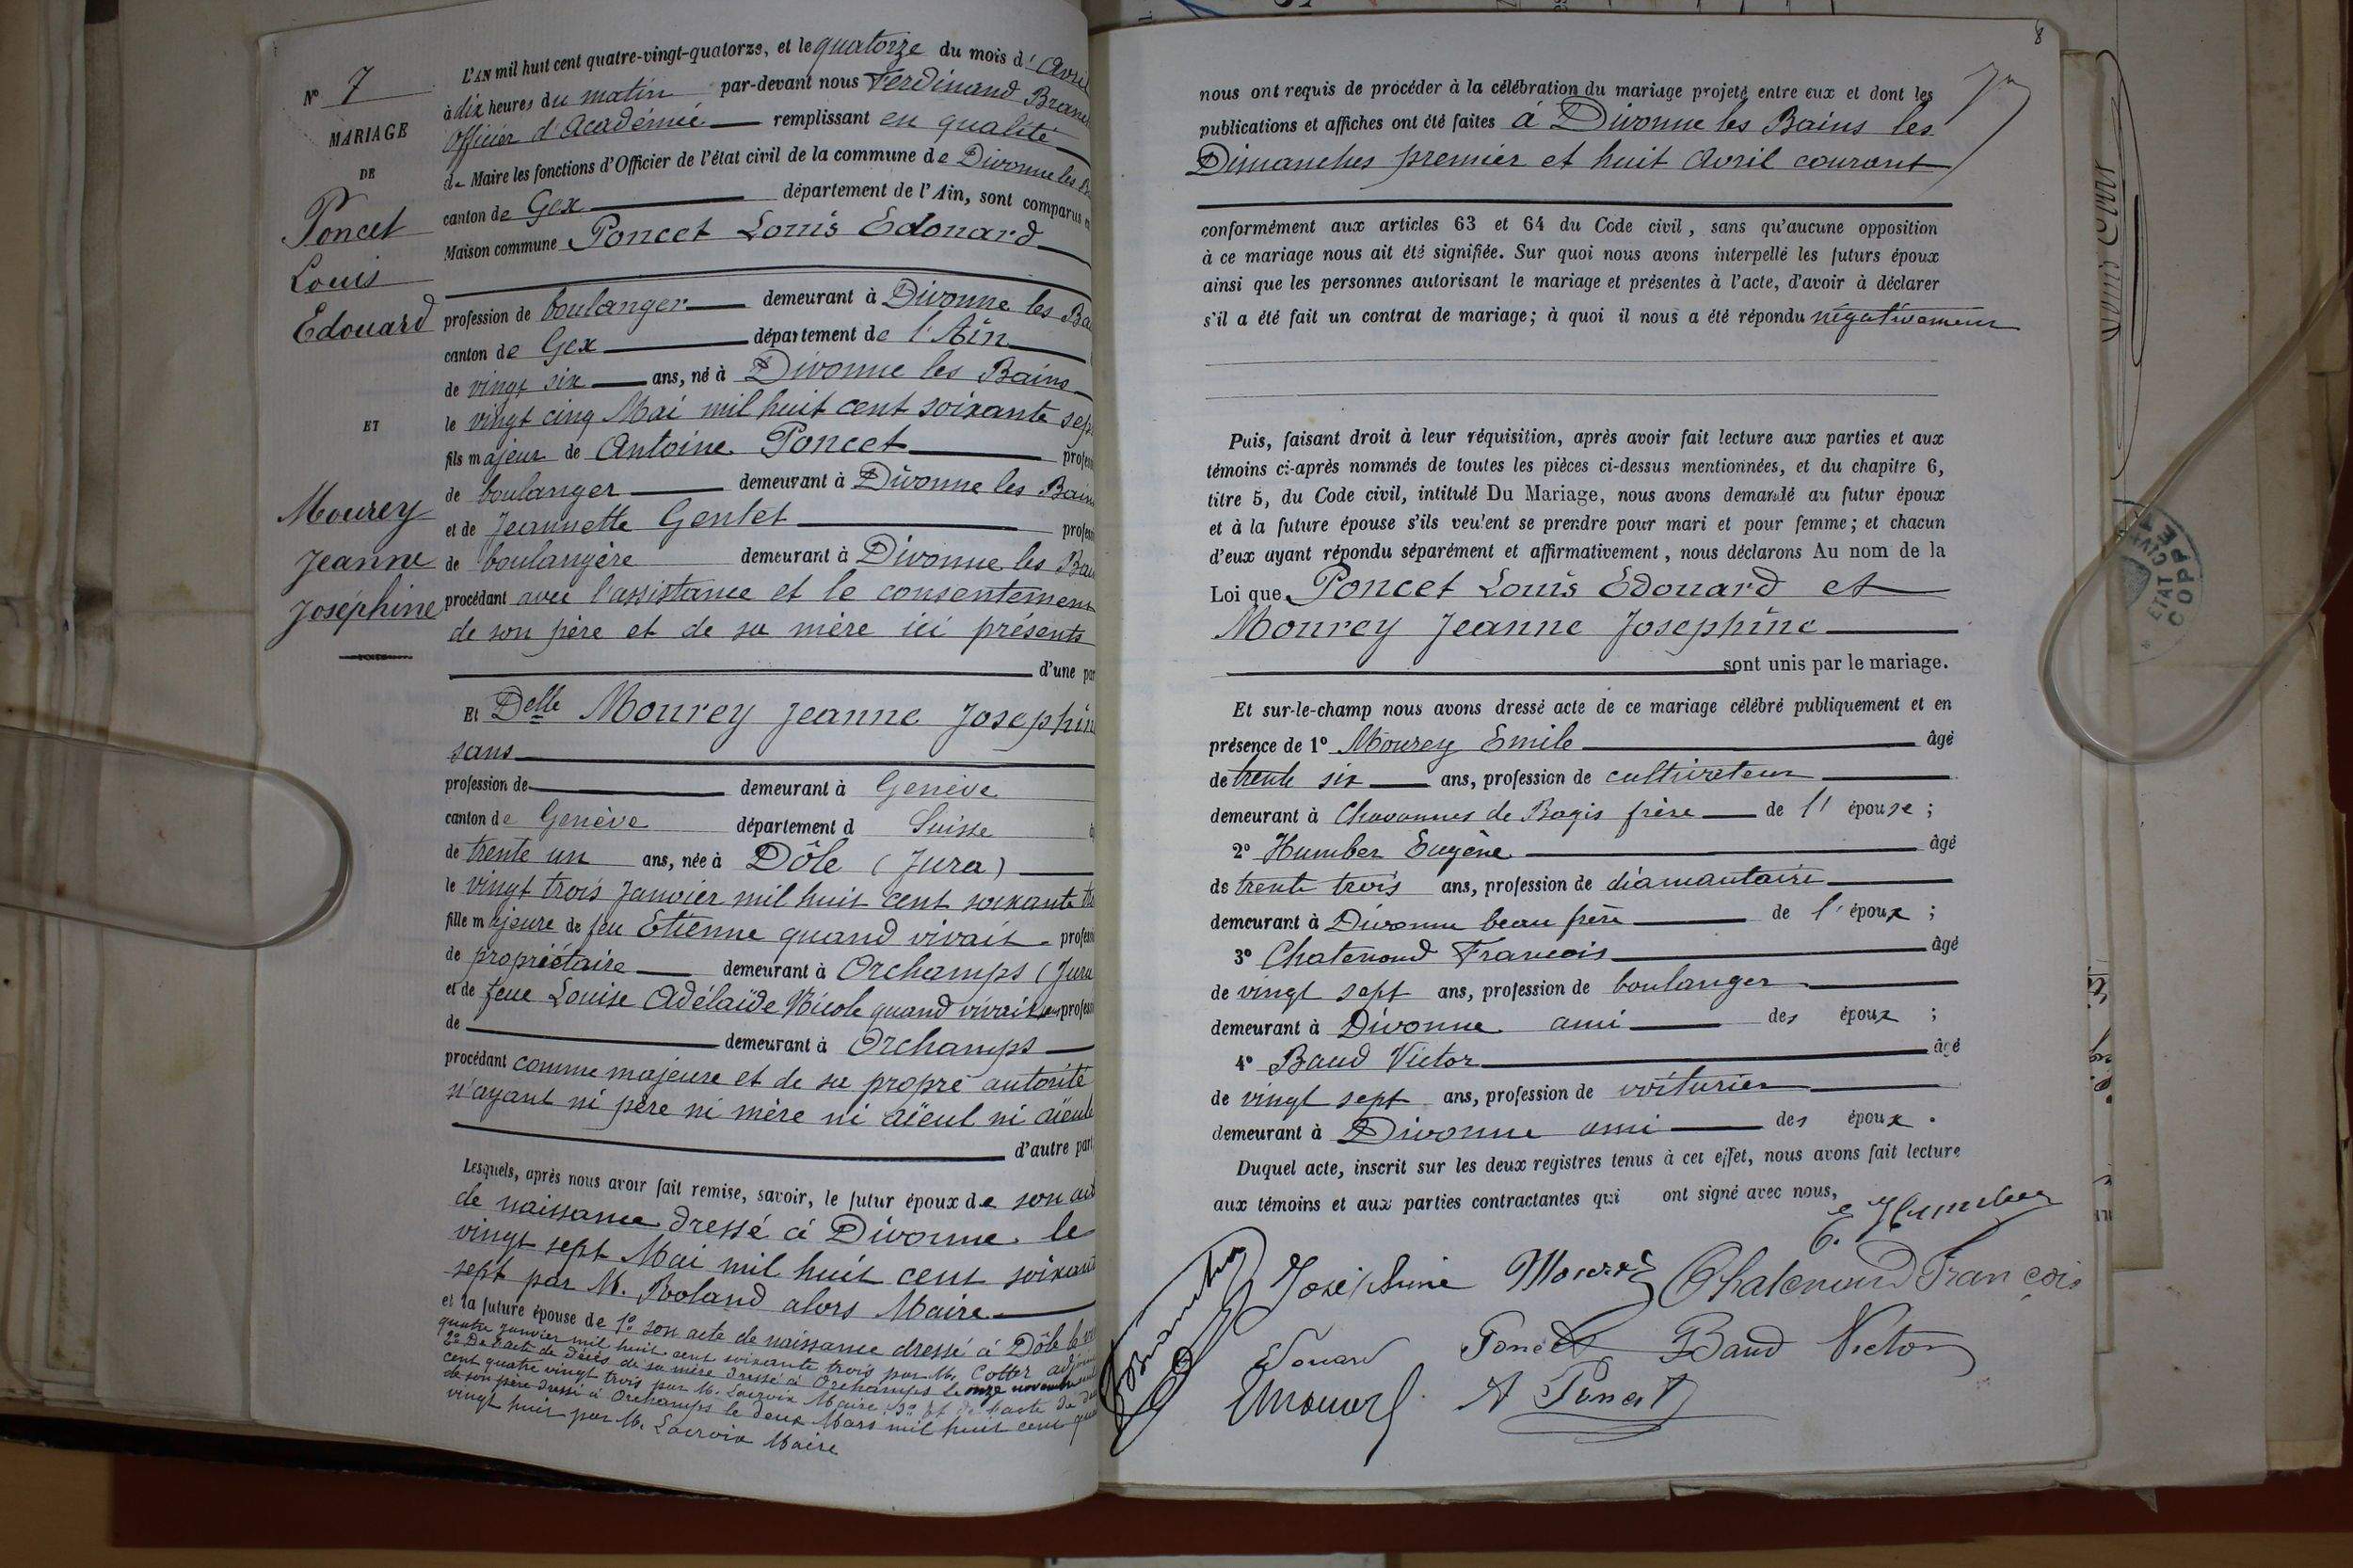 N° 7
MARIAGE
DE
Poncet
Louis
Edouard
ET
Mourey
Jeanne
Joséphine
L'AN mil huit cent quatre-vingt-quatorze, et le quatorze du mois d'Avril
à dix heures du matin par-devant nous Ferdinand
Officier d'Académie remplissant en qualité
de Maire les fonctions d'Officier de l'état civil de la commune de Divonne les
canton de Gex département de l'Ain, sont comparus
Maison commune Poncet Louis Edouard
profession de boulanger demeurant à Divonne les Ba
canton de Gex département de l'Ain
de vingt six ans, né à Divonne les Bains
le vingt cinq Mai mil huit cent soixante sept
fils majeur de Antoine Poncet profess
de boulanger demeurant à Divonne les Bains
et de Jeannette Gentet profess
de boulangère demeurant à Divonne les Bai
procédant avec l'assistance et le consentement
de son père et de sa mère ici présents
d'une par
Et Delle Mourey Jeanne Joséphin
sans
profession de demeurant à Genève
canton de Genève département d Suisse
de trente un ans, née à Dôle (Jura)
le vingt trois Janvier mil huit cent soixante tr
fille majeure de feu Etienne quand vivait professi
de propriétaire demeurant à Orchamps (Jura
et de feue Louise Adélaïde Nicole quand vivait profess
de demeurant à Orchamps
procédant comme majeure et de sa propre autorité
n'ayant ni père ni mère ni aïeul ni aïeule
d'autre part
Lesquels, après nous avoir fait remise, savoir, le futur époux de son act
de naissance dressé à Divonne le
vingt sept Mai mil huit cent soixant
sept par M. Roland alors Maire
et la future épouse de 1° son acte de naissance dressé à Dôle le vin
quatre janvier mil huit cent soixante trois par M. Cotter adjoin
2° De l'acte de décès de sa mère dressé à Orchamps le onze novembre mil
cent quatre vingt trois par M. Lacroix Maire 3° Et de l'acte de dé
de son père dressé à Orchamps le deux Mars mil huit cent qua
vingt huit par M. Lacroix Maire
8
nous ont requis de procéder à la célébration du mariage projeté entre eux et dont les
publications et affiches ont été faites à Divonne les Bains les
Dimanches premier et huit Avril courant
conformément aux articles 63 et 64 du Code civil, sans qu'aucune opposition
à ce mariage nous ait été signifiée. Sur quoi nous avons interpellé les futurs époux
ainsi que les personnes autorisant le mariage et présentes à l'acte, d'avoir à déclarer
s'il a été fait un contrat de mariage; à quoi il nous a été répondu négativement
Puis, faisant droit à leur réquisition, après avoir fait lecture aux parties et aux
témoins ci-après nommés de toutes les pièces ci-dessus mentionnées, et du chapitre 6,
titre 5, du Code civil, intitulé Du Mariage, nous avons demandé au futur époux
et à la future épouse s'ils veulent se prendre pour mari et pour femme; et chacun
d'eux ayant répondu séparément et affirmativement, nous déclarons Au nom de la
Loi que Poncet Louis Edouard et
Mourey Jeanne Josephine
sont unis par le mariage.
Et sur-le-champ nous avons dressé acte de ce mariage célébré publiquement et en
présence de 1° Mourey Emile âgé
de trente six ans, profession de cultivateur
demeurant à Chavannes de Bogis frère de l'épouse;
2° Humber Eugène âgé
de trente trois ans, profession de diamantaire
demeurant à Divonne beau frère de l'époux;
3° Chatenoud François âgé
de vingt sept ans, profession de boulanger
demeurant à Divonne ami des époux;
4° Baud Victor âgé
de vingt sept ans, profession de voiturier
demeurant à Divonne ami des époux.
Duquel acte, inscrit sur les deux registres tenus à cet effet, nous avons fait lecture
aux témoins et aux parties contractantes qui ont signé avec nous,
E. Humber
Joséphine Mourey Chatenoud François
Edouard Poncet Baud Victor
E Mourey A Poncet
ETAT CIVIL
COPPE